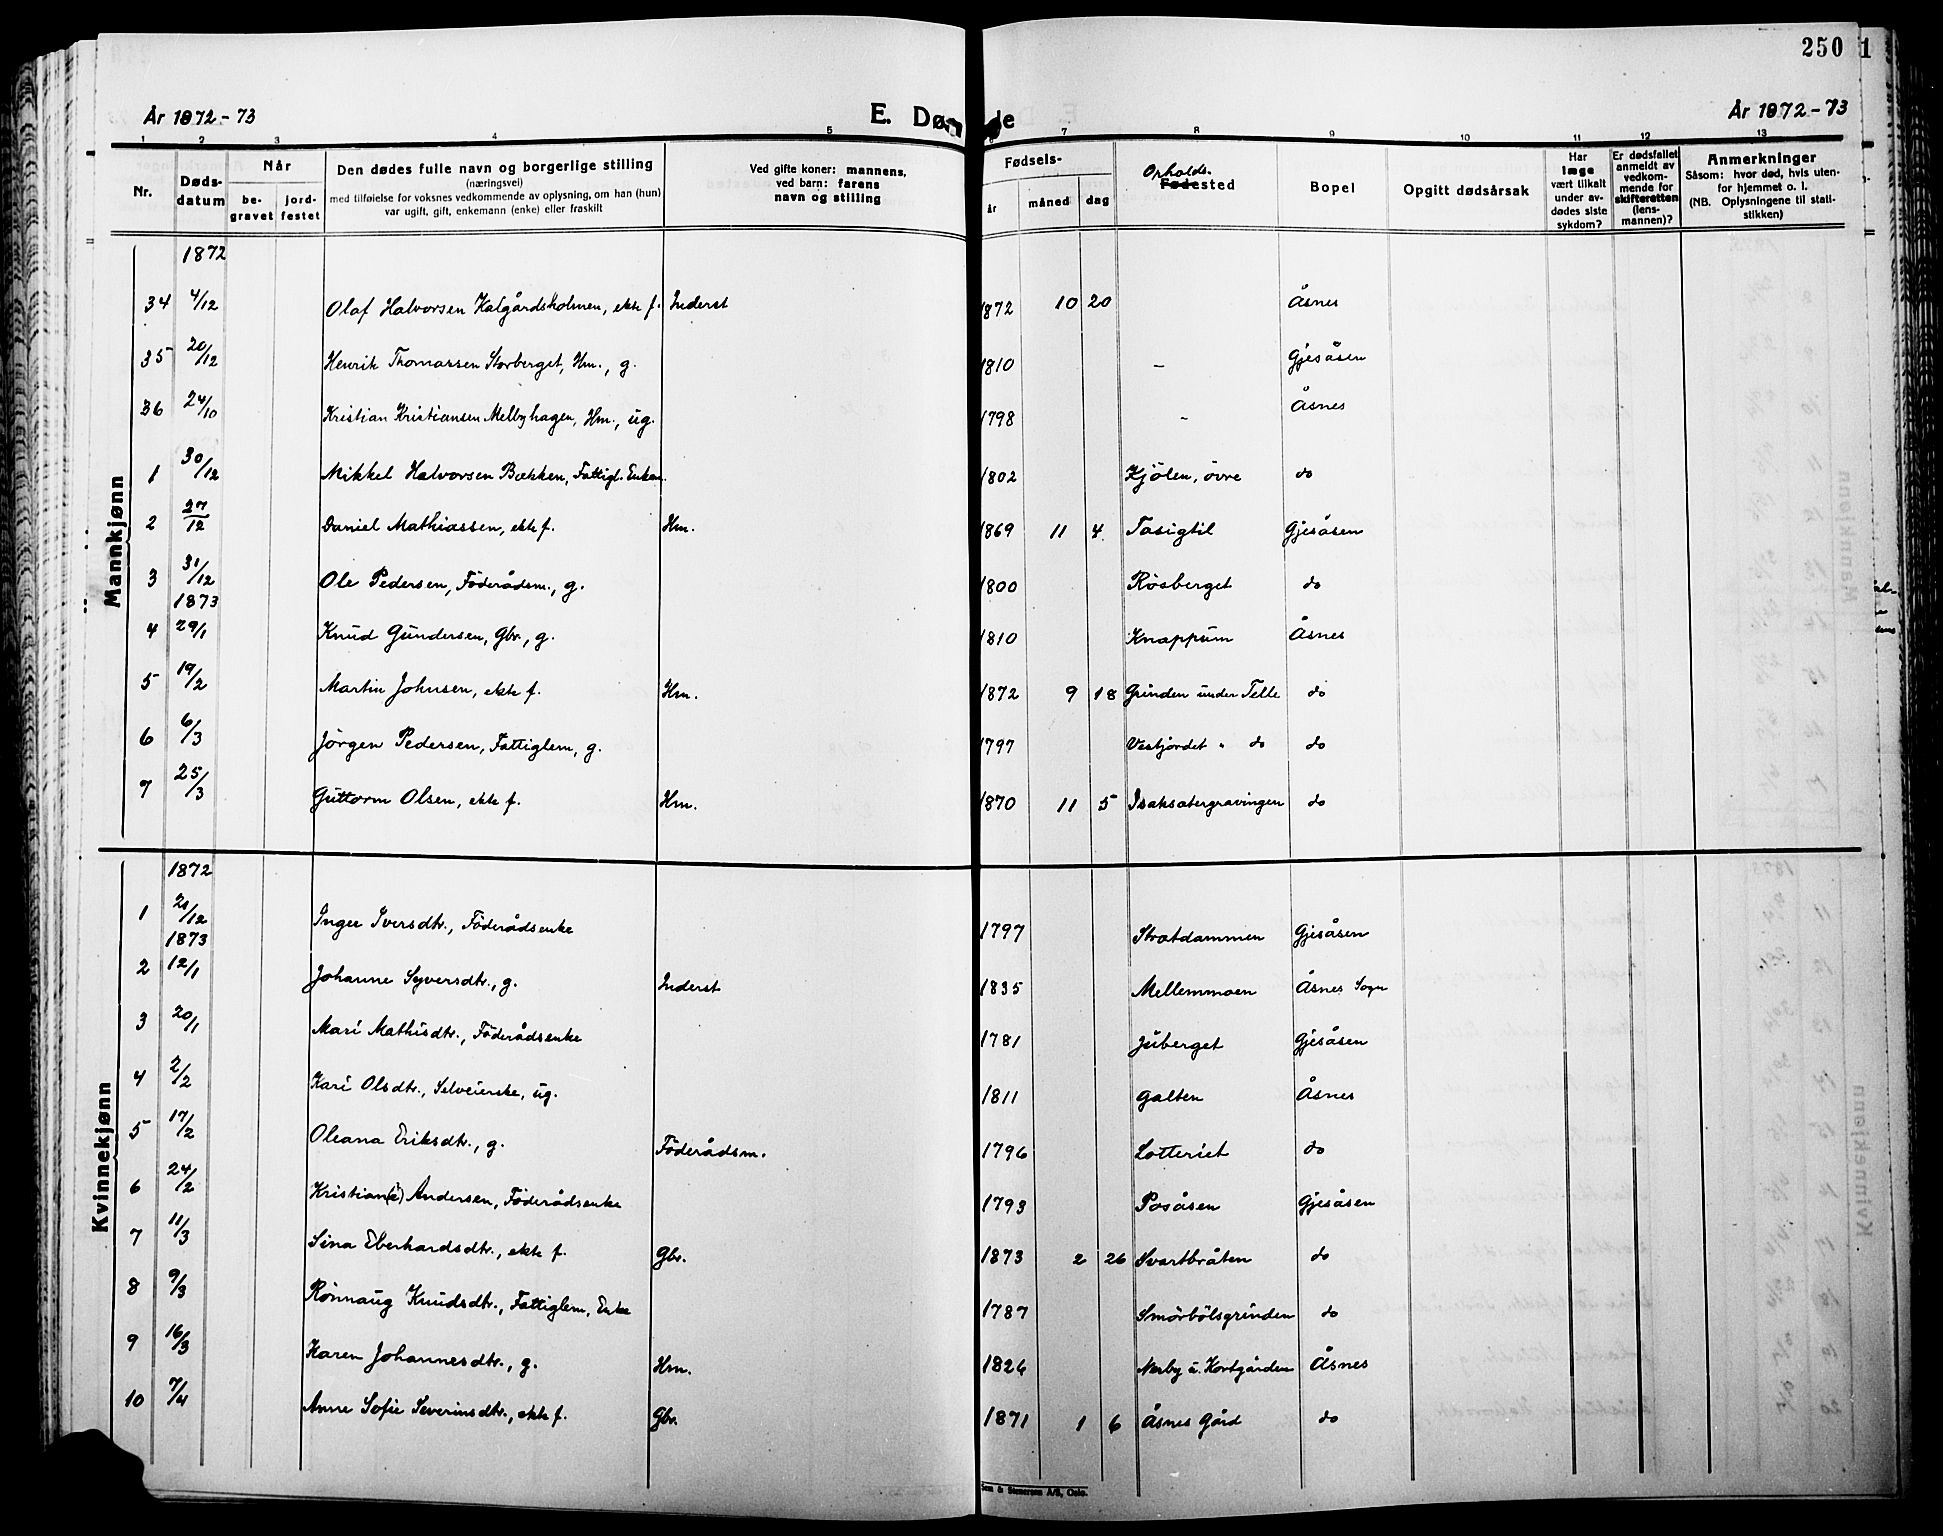 250
1
År 1872-73
E. Dø de
År 1872-73
1 2 3 4 5 6 7 8 9 10 11 12 13
Nr.
Døds-
datum
Når
be-
gravet
jord-
festet
Den dødes fulle navn og borgerlige stilling
(næringsvei)
med tilføielse for voksnes vedkommende av oplysning, om han (hun)
var ugift, gift, enkemann (enke) eller fraskilt
Ved gifte koner: mannens,
ved barn: farens
navn og stilling
Fødsels-
år
måned
dag
Opholds-
Fødested
Bopel
Opgitt dødsårsak
Har
læge
vært tilkalt
under av-
dødes siste
sykdom?
Er dødsfallet
anmeldt av
vedkom-
mende for
skifteretten
(lens-
mannen)?
Anmerkninger
Såsom: hvor død, hvis uten-
for hjemmet o. l.
(NB. Oplysningene til stati-
stikken)
Mannkjønn
1872
34 4/12 Olaf Halvorsen Kalgårdsholmen, ekte f. Inderst 1872 10 20 Åsnes
35 20/12 Henrik Thomassen Storberget, Hm., g. 1810 - Gjesåsen
36 24/10 Kristian Kristiansen Melbyhagen, Hm., ug. 1798 - Åsnes
1 30/12 Mikkel Halvorsen Bækken, Fattigl. Enkem. 1802 Kjölen, övre do
2 27/12 Daniel Mathiassen, ekte f. Hm. 1869 11 4 Tasigtil Gjesåsen
3 31/12 Ole Pedersen, Föderådsm., g. 1800 Røsberget do
1873
4 29/1 Knud Gundersen, Gbr., g. 1810 Knappum Åsnes
5 19/2 Martin Johnsen, ekte f. Hm. 1872 9 18 Grinden under Telle do
6 6/3 Jörgen Pedersen, Fattiglem, g. 1797 Vestjordet " do do
7 25/3 Guttorm Olsen, ekte f. Hm. 1870 11 5 Isaksætergravingen do
Kvinnekjønn
1872
1 21/12 Inger Iversdtr., Föderådsenke 1797 Stratdammen Gjesåsen
1873
2 12/1 Johanne Syversdtr., g. Inderst 1835 Mellemmoen Åsnes Sogn
3 20/1 Mari Mathisdtr., Föderådsenke 1781 Juberget Gjesåsen
4 2/2 Kari Olsdtr., Selveierske, ug. 1811 Galten Åsnes
5 17/2 Oleana Eriksdtr., g. Föderådsm. 1796 Lotteriet do
6 24/2 Kristian(e) Andersen, Föderådsenke 1793 Posåsen Gjesåsen
7 11/3 Sina Eberhardsdtr., ekte f. Gbr. 1873 2 26 Svartbråten do
8 9/3 Rönnaug Knudsdtr., Fattiglem, Enke 1787 Smörbölsgrinden do
9 16/3 Karen Johannesdtr., g. Hm. 1826 Nerby u. Kortgården Åsnes
10 7/4 Anne Sofie Severinsdtr., ekte f. Gbr. 1871 1 6 Åsnes Gård do
Sem & Stenersen A/S, Oslo.